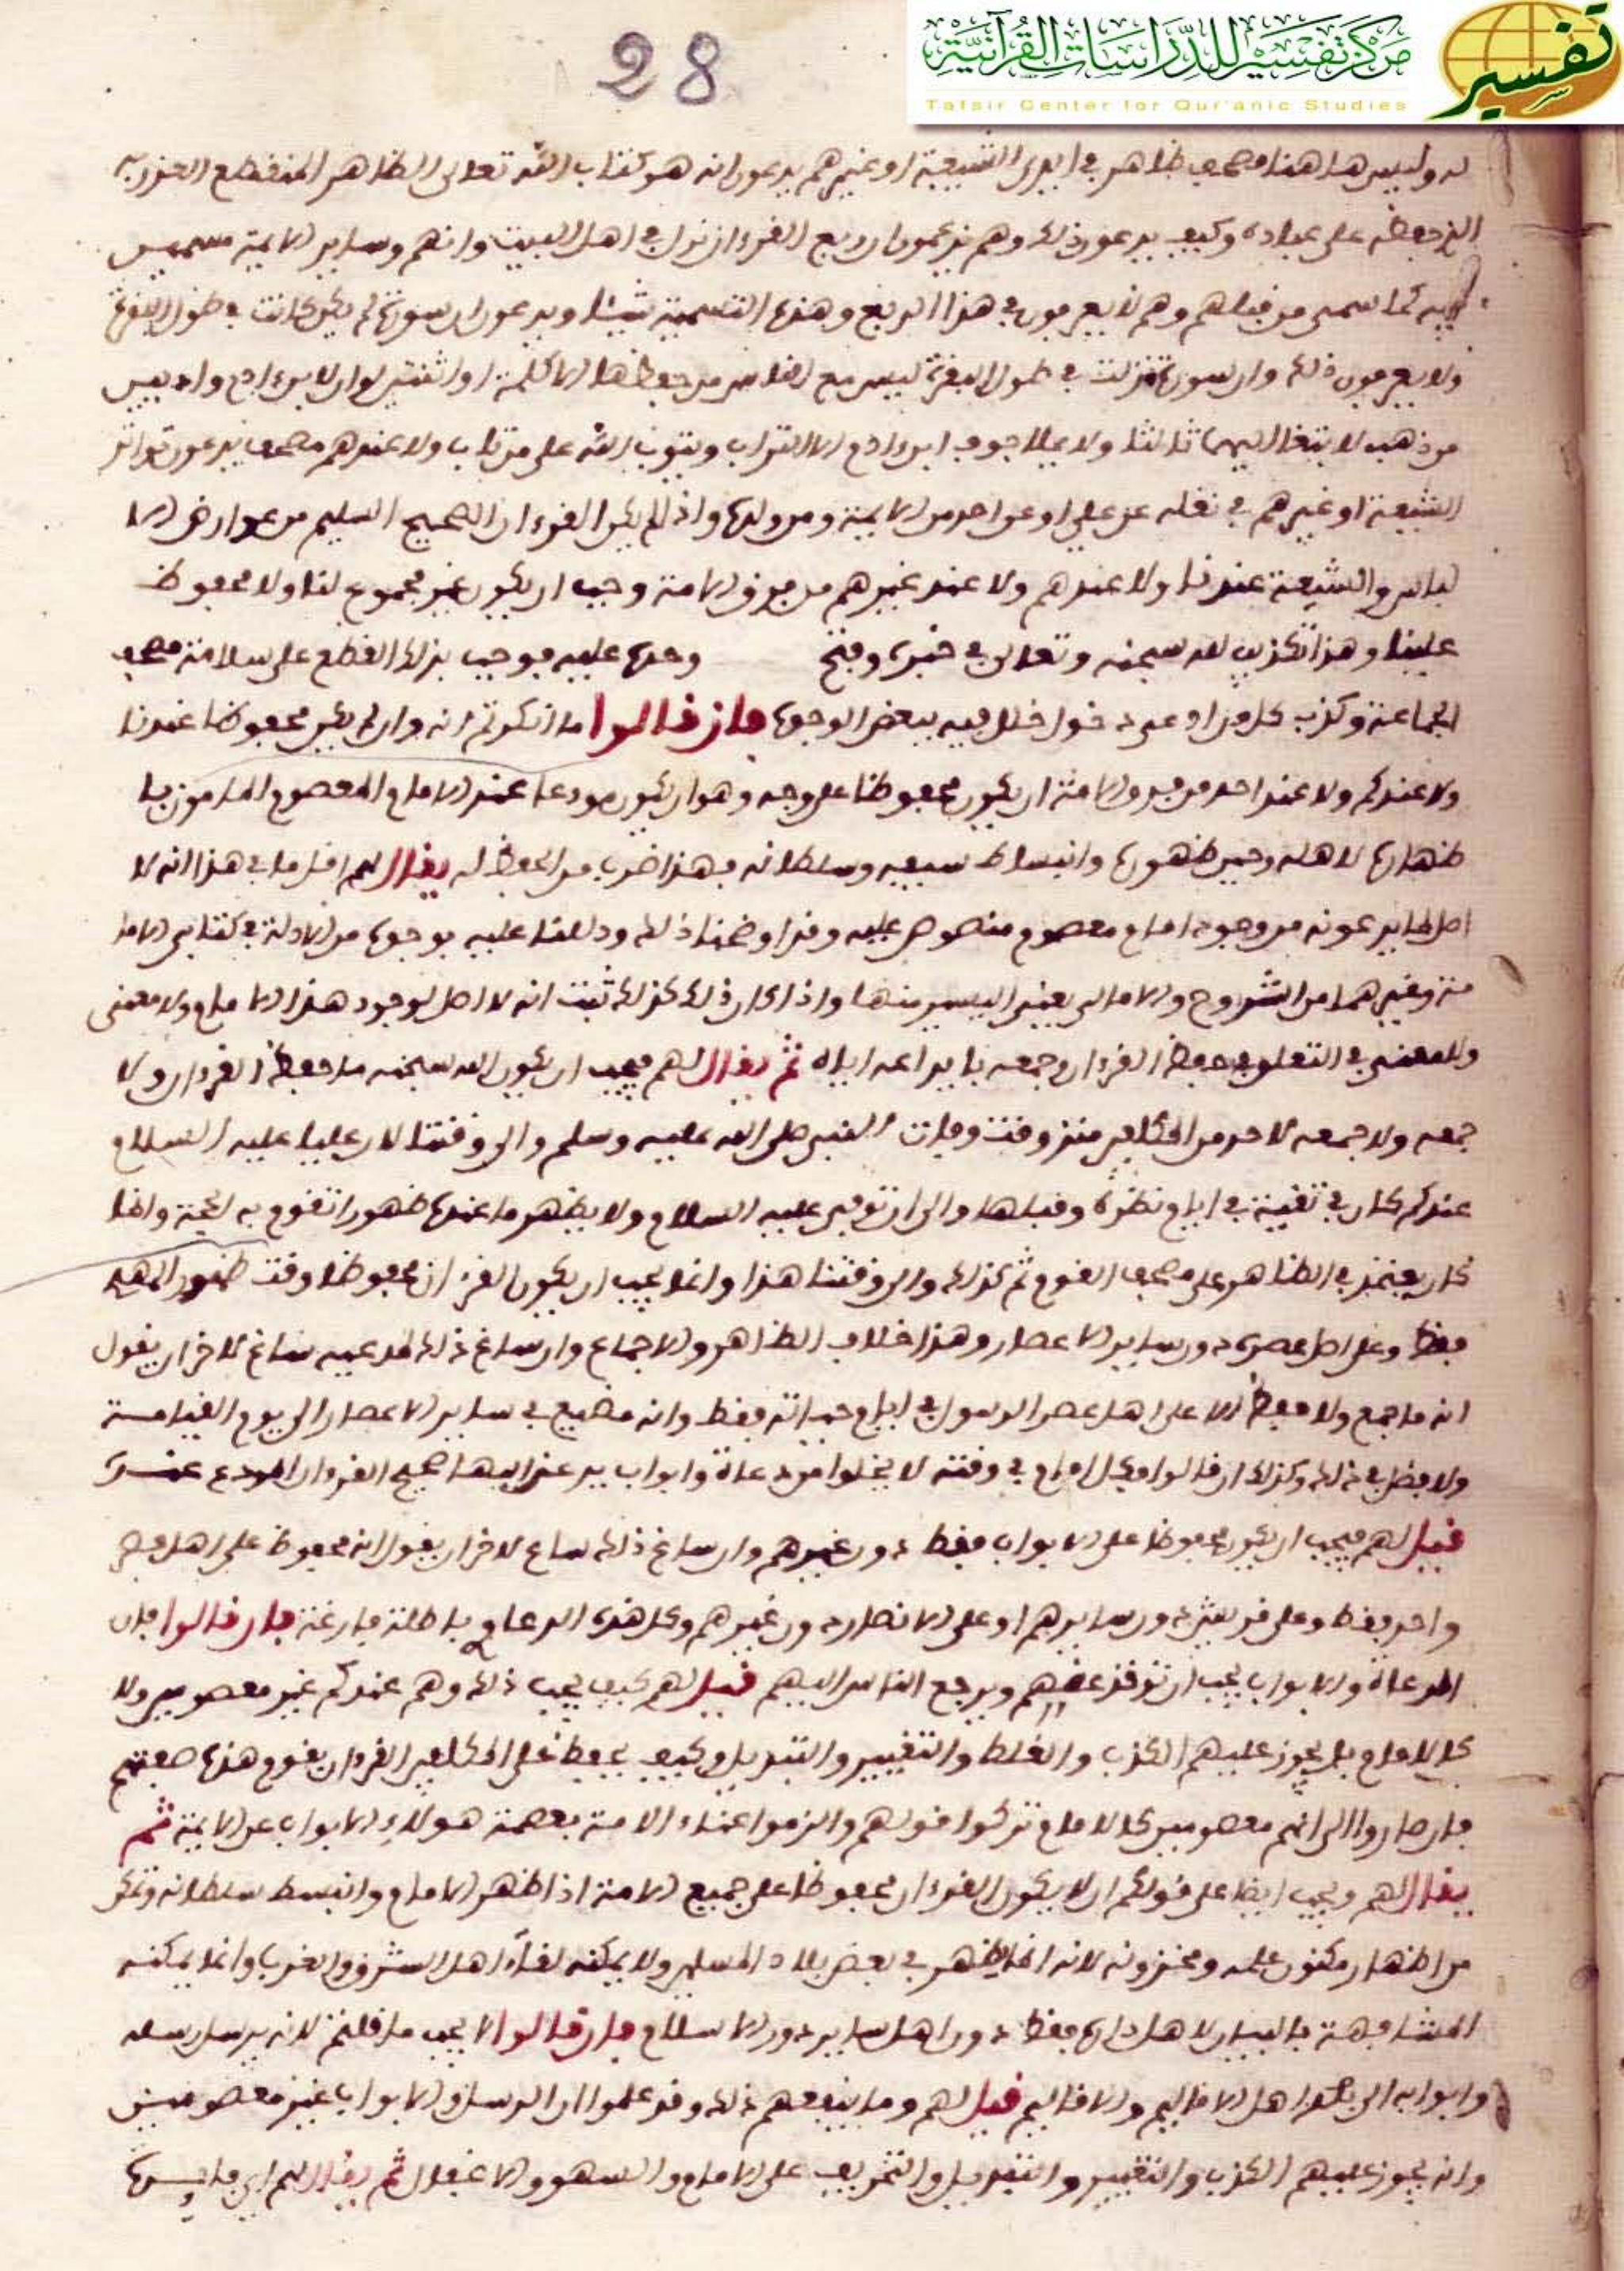 28
مركز تفسير للدراسات القرآنية
Tafsir Center for Qur'anic Studies
تفسير
له وليس هاهنا مصحف ظاهر في ايدي الشيعة او غيرهم يدعون انه هو كتاب الله تعالى الظاهر المنقطع العذر به
الذي حفظه على عباده وكيف يدعون ذلك وهم يزعمون ان ربع القرءان نزل في اهل البيت وانهم وساير الايمة مسمين
فيه كما سمى من قبلهم وهم لا يعرفون في هذا الربع وهذه التسمية شيئا ويدعون ان سورة لم يكن كانت في طول البقرة
ولا يعرفون ذلك وان سورة نزلت في طول البقرة ليس مع الناس من حفظها الا كلمة او اثنتين لو ان لابن ءادم واديين
من ذهب لابتغا اليهما ثالثا ولا يملا جوف ابن ءادم الا التراب ويتوب الله على من تاب ولا عندهم مصحف يدعون تواتر
الشيعة او غيرهم في نقله عن علي او عن احد من الايمة ومن ولده واذا لم يكن القرءان الصحيح السليم من عوارض الا
لباس والشبهة عندنا ولا عندهم ولا عند غيرهم من فرق الامة وجب ان يكون غير مجموع لنا ولا محفوظ
علينا وهذا تكذيب لله سبحنه وتعالى في خبره وفتح وعده عليه فوجب بذلك القطع على سلامة مصحف
الجماعة وكذب كل من ادعى دخول خلل فيه ببعض الوجوه فان قالوا ما انكرتم انه وان لم يكن محفوظا عندنا
ولا عندكم ولا عند احد من فرق الامة ان يكون محفوظا على وجه وهو ان يكون مودعا عند الامام المعصوم المامور با
ظهاره لاهله وحين ظهوره وانبساط سيفه وسلطانه فهذا ضرب من الحفظ له يقال لهم اقل ما في هذا انه لا
اصل لما يدعونه من وجود امام معصوم منصوص عليه وقد اوضحنا ذلك ودللنا عليه بوجوه من الادلة في كتابي الاما
مة وغيرهما من الشروح والامالي بغنى اليسير منها واذا كان ذلك كذلك ثبت انه لا اصل لوجود هذا الامام ولا معنى
وللمعنى في التعلق في حفظ القرءان وجمعه بايداعه اياه ثم يقال لهم فيجب ان يكون الله سبحنه ما حفظ القرءان ولا
جمعه ولا جمعه لاحد من المكلفين منذ وقت وفات النبي صلى الله عليه وسلم والى وقتنا لان عليا عليه السلام
عندكم كان في تقية في ايام نظره وقبلها والى ان توفي عليه السلام ولا يظهر ما عنده ظهورا تقوم به الحجة وانما
كان يعتمد في الظاهر على مصحف القوم ثم كذلك والى وقتنا هذا وانما يجب ان يكون القرءان محفوظا وقت ظهور المهدي
فقط وعلى اهل عصره دون ساير الاعصار وهذا خلاف الظاهر والاجماع وان ساغ ذلك لمدعيه ساغ لاخر ان يقول
انه ما جمع ولا حفظ الا على اهل عصر الرسول في ايام حياته فقط وانه مضيع في ساير الاعصار الى يوم القيامة
ولا فضل في ذلك وكذلك ان قالوا فكل امام في وقته لا يخلوا من دعاة وابواب يدعنر اليها صحيح القرءان المودع عنده
قيل لهم فيجب ان يكون محفوظا على الابواب فقط دون غيرهم وان ساغ ذلك ساغ لاخر ان يقول انه محفوظ على اهل مصر
واحد فقط وعلى قريش دون سايرهم او على الانصار دون غيرهم وكل هذه الدعاوي باطلة فارغة فان قالوا فان
الدعاة والابواب يجب ان توخذ عنهم ويرجع الناس اليهم قيل لهم كيف يجب ذلك وهم عندكم غير معصومين ولا
كالامام بل يجوز عليهم الكذب والغلط والتغيير والتبديل وكيف يحفظ على المكلفين القرءان بقوم هذه صفتهم
فان صاروا الى انهم معصومين كالامام تركوا قولهم والزموا غناء الامة بعصمة هولاء الابواب عن الايمة ثم
يقال لهم ويجب ايضا على قولكم ان لا يكون القرءان محفوظا على جميع الامة اذا ظهر الامام وانبسط سلطانه وتمكن
من اظهار مكنون علمه ومخزونه لانه انما يظهر في بعض بلاد المسلمين ولا يمكنه لقاء اهل الشرق والغرب وانما يمكنه
المشافهة بالبيان لاهل داره فقط دون اهل ساير دور الاسلام فان قالوا لا يجب ما قلتم لانه يرسل رسله
وابوابه الى اهل الاقاليم والاقاليم قيل لهم وما ينفعهم ذلك وقد علموا ان الرسل والابواب غير معصومين
وانه يجوز عليهم الكذب والتغيير والتبديل والتحريف على الامام والسهو والاغفال ثم يقال لهم اي فايدة